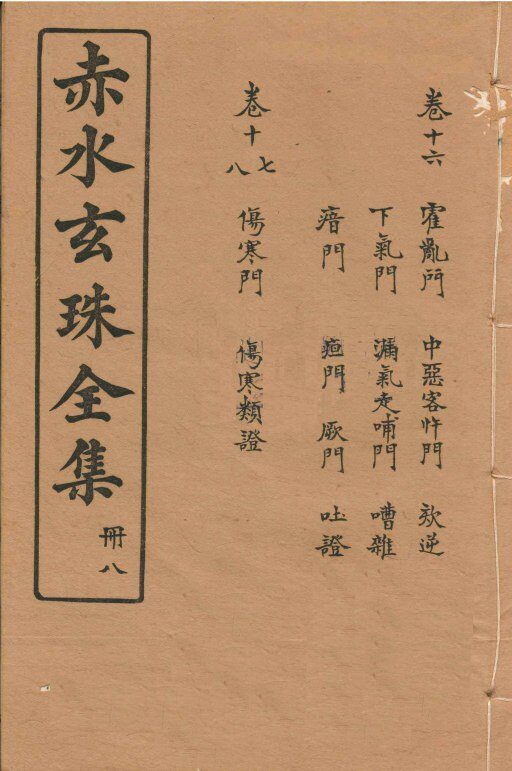 赤水玄珠全集 冊八
卷十六 霍亂門 中惡客忤門 欬逆
下氣門 漏氣走哺門 嘈雜
瘖門 疸門 厥門 吐證
卷十七八 傷寒門 傷寒類證